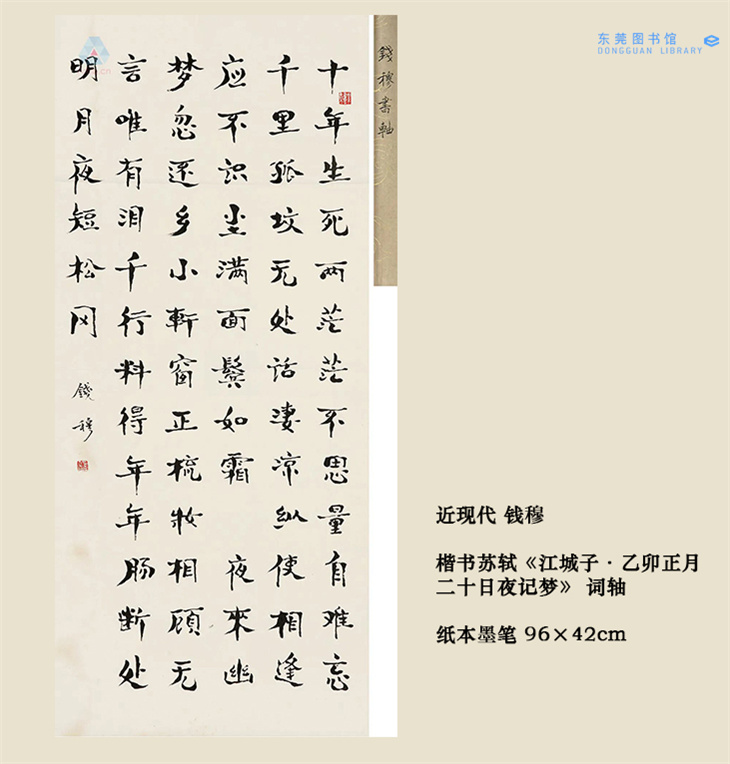 东莞图书馆
DONGGUAN LIBRARY
錢穆書軸
十年生死两茫茫不思量自难忘
千里孤坟无处话凄凉纵使相逢
应不识尘满面鬓如霜 夜來幽
梦忽还乡小軒窗正梳妆相顾无
言唯有泪千行料得年年肠断处
明月夜短松冈
錢穆
近现代 钱穆
楷书苏轼《江城子·乙卯正月
二十日夜记梦》 词轴
纸本墨笔 96×42cm